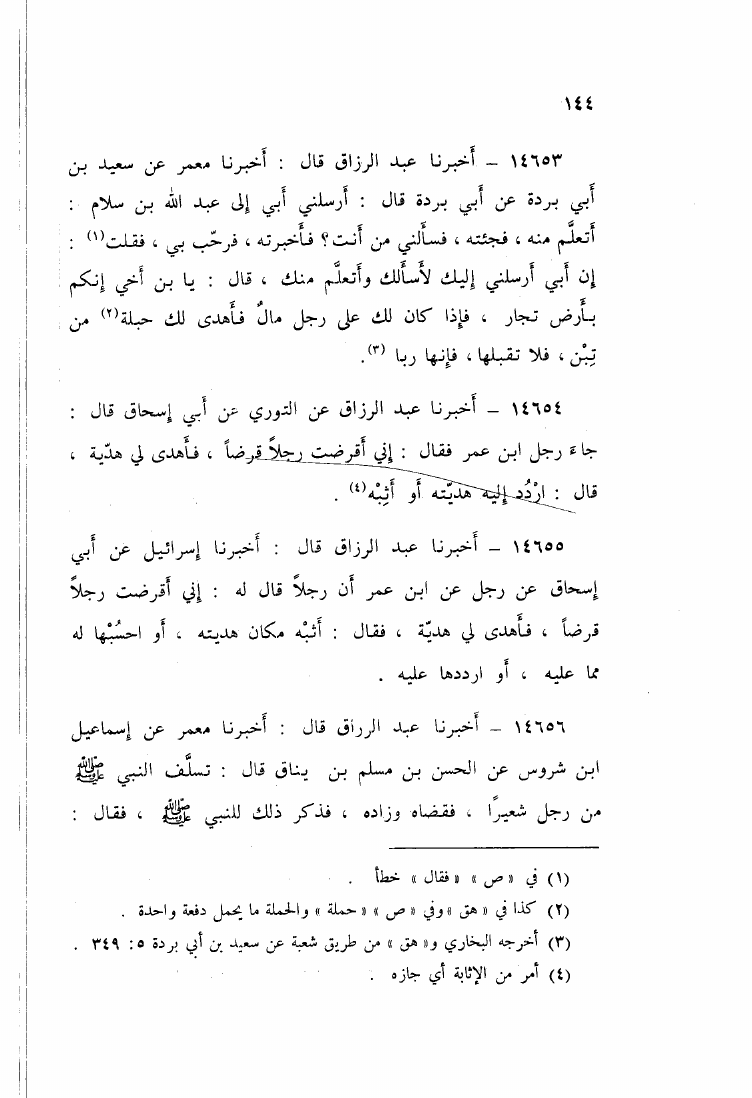 ١٤٤
١٤٦٥٣ – أخبرنا عبد الرزاق قال : أخبرنا معمر عن سعيد بن
أبي بردة عن أبي بردة قال : أرسلني أبي إلى عبد الله بن سلام :
أتعلَّم منه ، فجئته ، فسألني من أنت؟ فأخبرته ، فرحّب بي ، فقلت(١) :
إن أبي أرسلني إليك لأسألك وأتعلَّم منك ، قال : يا بن أخي إنكم
بأرض تجار ، فإذا كان لك على رجل مالٌ فأهدى لك حبلة(٢) من
تِبْن ، فلا تقبلها ، فإنها ربا (٣).
١٤٦٥٤ – أخبرنا عبد الرزاق عن الثوري عن أبي إسحاق قال :
جاءَ رجل ابن عمر فقال : إني أقرضت رجلاً قرضاً ، فأهدى لي هديّة ،
قال : ارْدُد إليه هديّته أو أثِبْه(٤) .
١٤٦٥٥ – أخبرنا عبد الرزاق قال : أخبرنا إسرائيل عن أبي
إسحاق عن رجل عن ابن عمر أن رجلاً قال له : إني أقرضت رجلاً
قرضاً ، فأهدى لي هديّة ، فقال : أثبْه مكان هديته ، أو احسُبْها له
مما عليه ، أو ارددها عليه .
١٤٦٥٦ – أخبرنا عبد الرزاق قال : أخبرنا معمر عن إسماعيل
ابن شروس عن الحسن بن مسلم بن يناق قال : تسلَّف النبي ﷺ
من رجل شعيرًا ، فقضاه وزاده ، فذكر ذلك للنبي ﷺ ، فقال :
(١) في « ص » « فقال » خطأ .
(٢) كذا في « هق » وفي « ص » « حملة » والحملة ما يحمل دفعة واحدة .
(٣) أخرجه البخاري و« هق » من طريق شعبة عن سعيد بن أبي بردة ٥: ٣٤٩ .
(٤) أمر من الإثابة أي جازه .